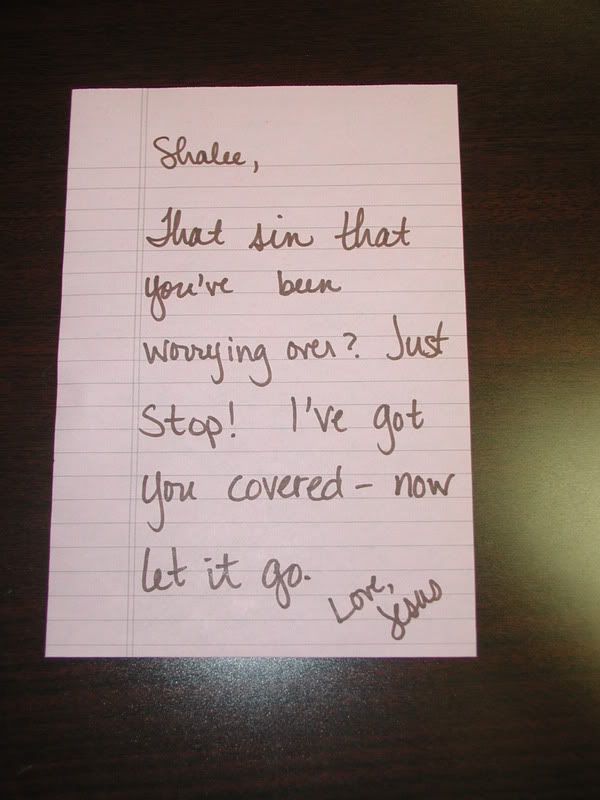 Shalee,
That sin that
you've been
worrying over? Just
Stop! I've got
you covered - now
let it go.
Love,
Jesus